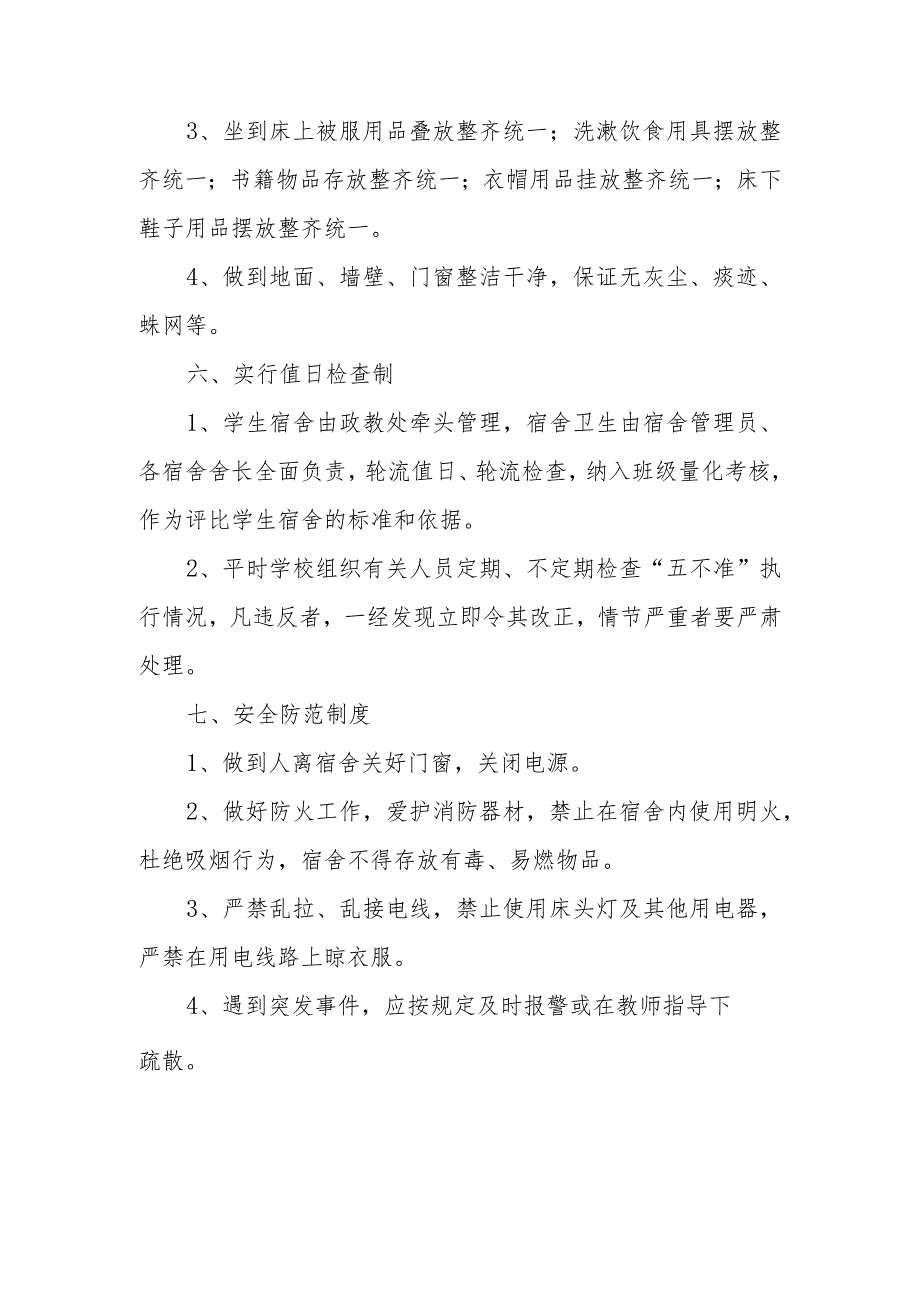 3、坐到床上被服用品叠放整齐统一；洗漱饮食用具摆放整
齐统一；书籍物品存放整齐统一；衣帽用品挂放整齐统一；床下
鞋子用品摆放整齐统一。
4、做到地面、墙壁、门窗整洁干净，保证无灰尘、痰迹、
蛛网等。
六、实行值日检查制
1、学生宿舍由政教处牵头管理，宿舍卫生由宿舍管理员、
各宿舍舍长全面负责，轮流值日、轮流检查，纳入班级量化考核，
作为评比学生宿舍的标准和依据。
2、平时学校组织有关人员定期、不定期检查“五不准”执
行情况，凡违反者，一经发现立即令其改正，情节严重者要严肃
处理。
七、安全防范制度
1、做到人离宿舍关好门窗，关闭电源。
2、做好防火工作，爱护消防器材，禁止在宿舍内使用明火，
杜绝吸烟行为，宿舍不得存放有毒、易燃物品。
3、严禁乱拉、乱接电线，禁止使用床头灯及其他用电器，
严禁在用电线路上晾衣服。
4、遇到突发事件，应按规定及时报警或在教师指导下
疏散。